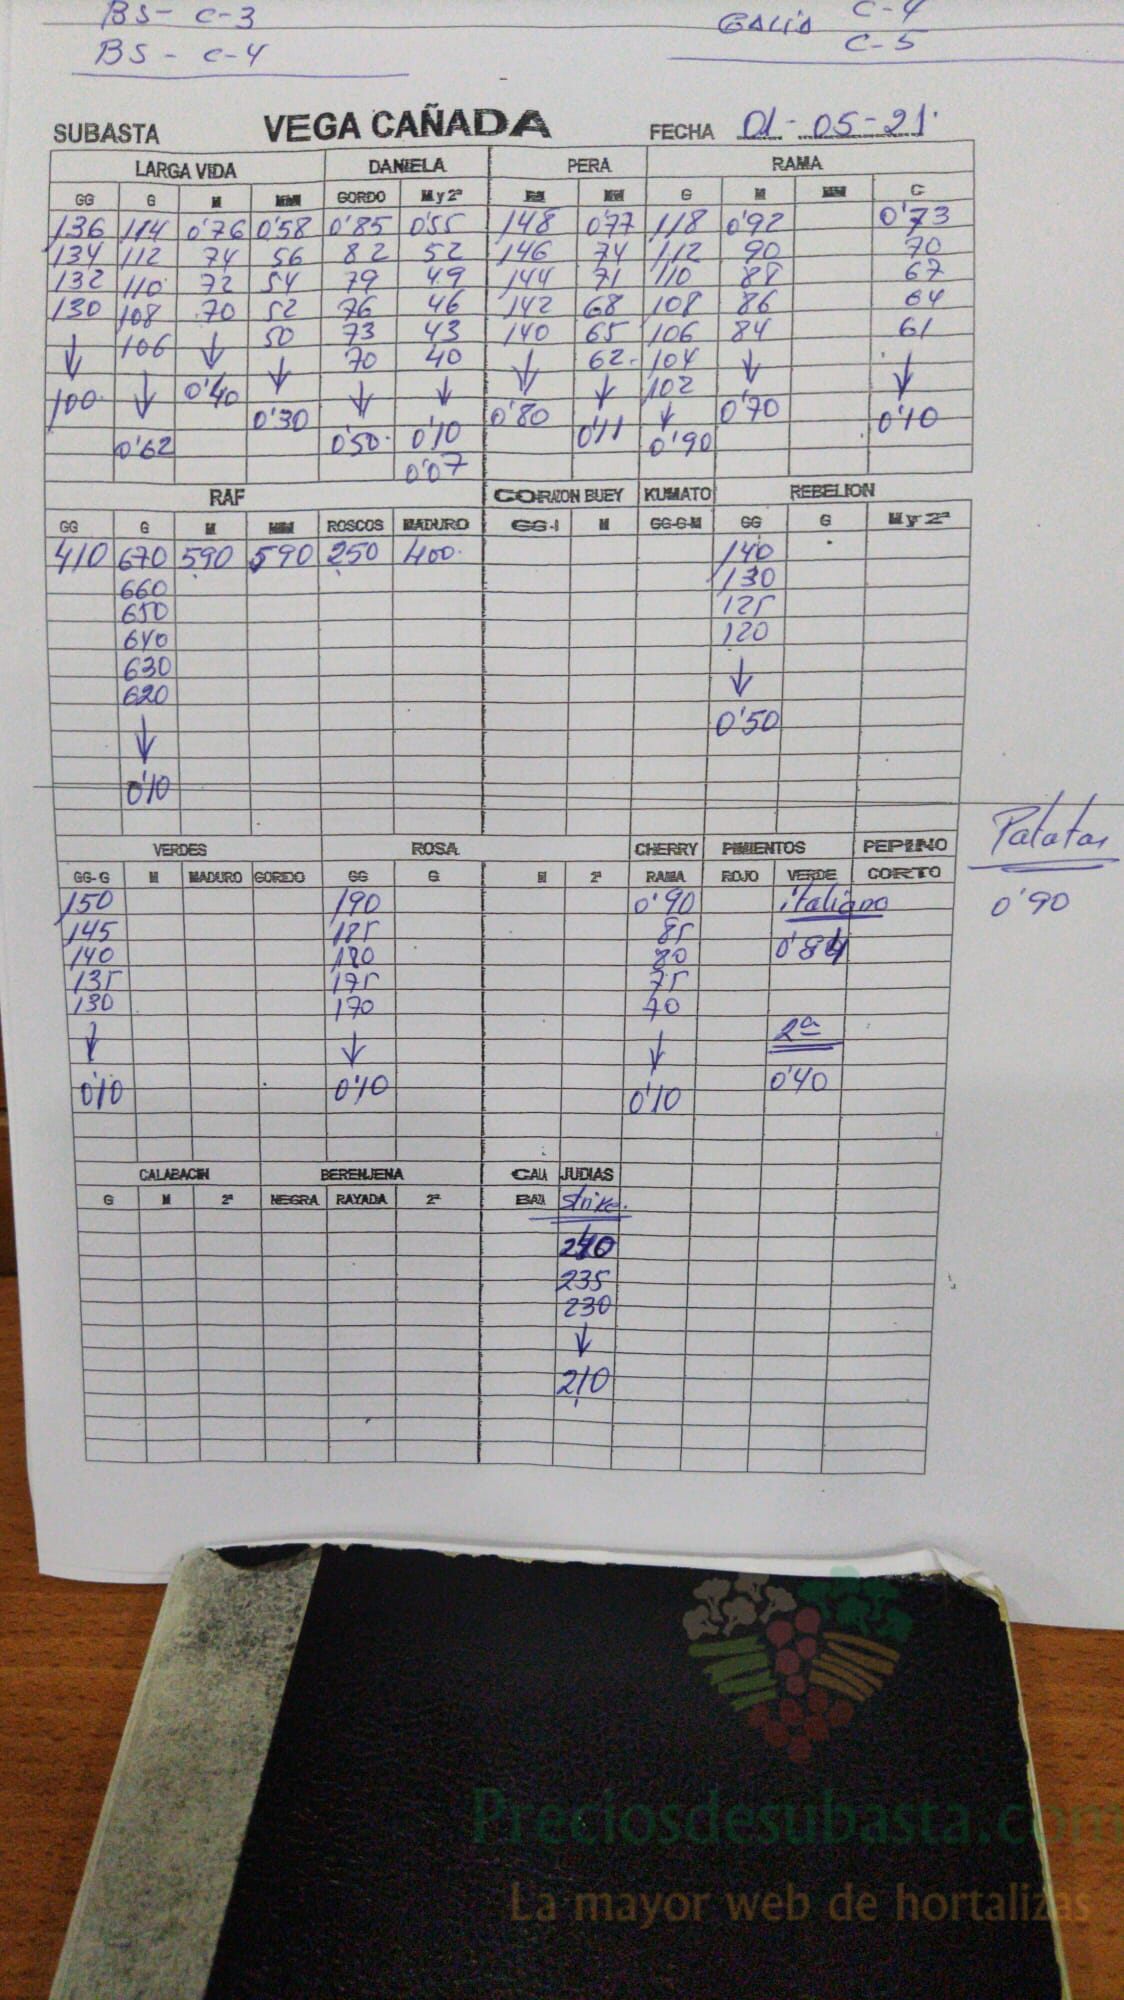 BS - C-3
BS - C-4
GALIA C-4
C-5
SUBASTA VEGA CAÑADA FECHA 01-05-21
LARGA VIDA DANIELA PERA RAMA
GG G M MM GORDO M y 2ª M MM G M MM C
136 114 0'76 0'58 0'85 0'55 148 0'77 118 0'92 0'73
134 112 74 56 82 52 146 74 112 90 70
132 110 72 54 79 49 144 71 110 88 67
130 108 70 52 76 46 142 68 108 86 64
↓ 106 ↓ 50 73 43 140 65 106 84 61
70 40 62 104
100 ↓ 0'40 ↓ ↓ ↓ ↓ ↓ 102 ↓ ↓
0'30 0'80 ↓ 0'70 0'10
0'62 0'50 0'10 0'11 0'90
0'07
RAF CORAZON BUEY KUMATO REBELION
GG G M MM ROSCOS MADURO GG-I M GG-G-M GG G M y 2ª
410 670 590 590 250 400 140
660 130
650 125
640 120
630
620 ↓
↓ 0'50
0'10
VERDES ROSA CHERRY PIMIENTOS PEPINO
GG-G M MADURO GORDO GG G M 2ª RAMA ROJO VERDE CORTO
150 190 0'90 italiano
145 185 85 0'84
140 180 80
135 175 75
130 170 70
↓ ↓ ↓ 2ª
0'10 0'10 0'10 0'40
Patatas
0'90
CALABACIN BERENJENA CALA JUDIAS
G M 2ª NEGRA RAYADA 2ª BAZA Strike
240
235
230
↓
210
Preciosdesubasta.com
La mayor web de hortalizas